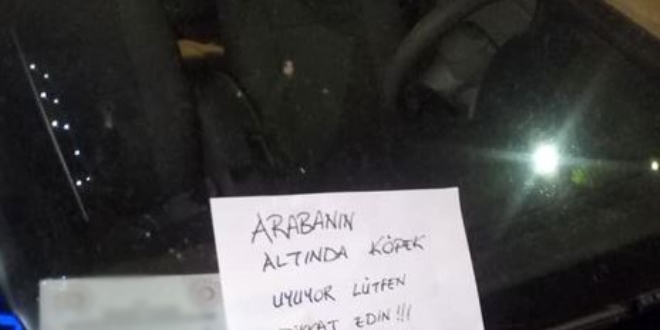 ARABANIN
ALTINDA KÖPEK
UYUYOR LÜTFEN
DİKKAT EDİN!!!